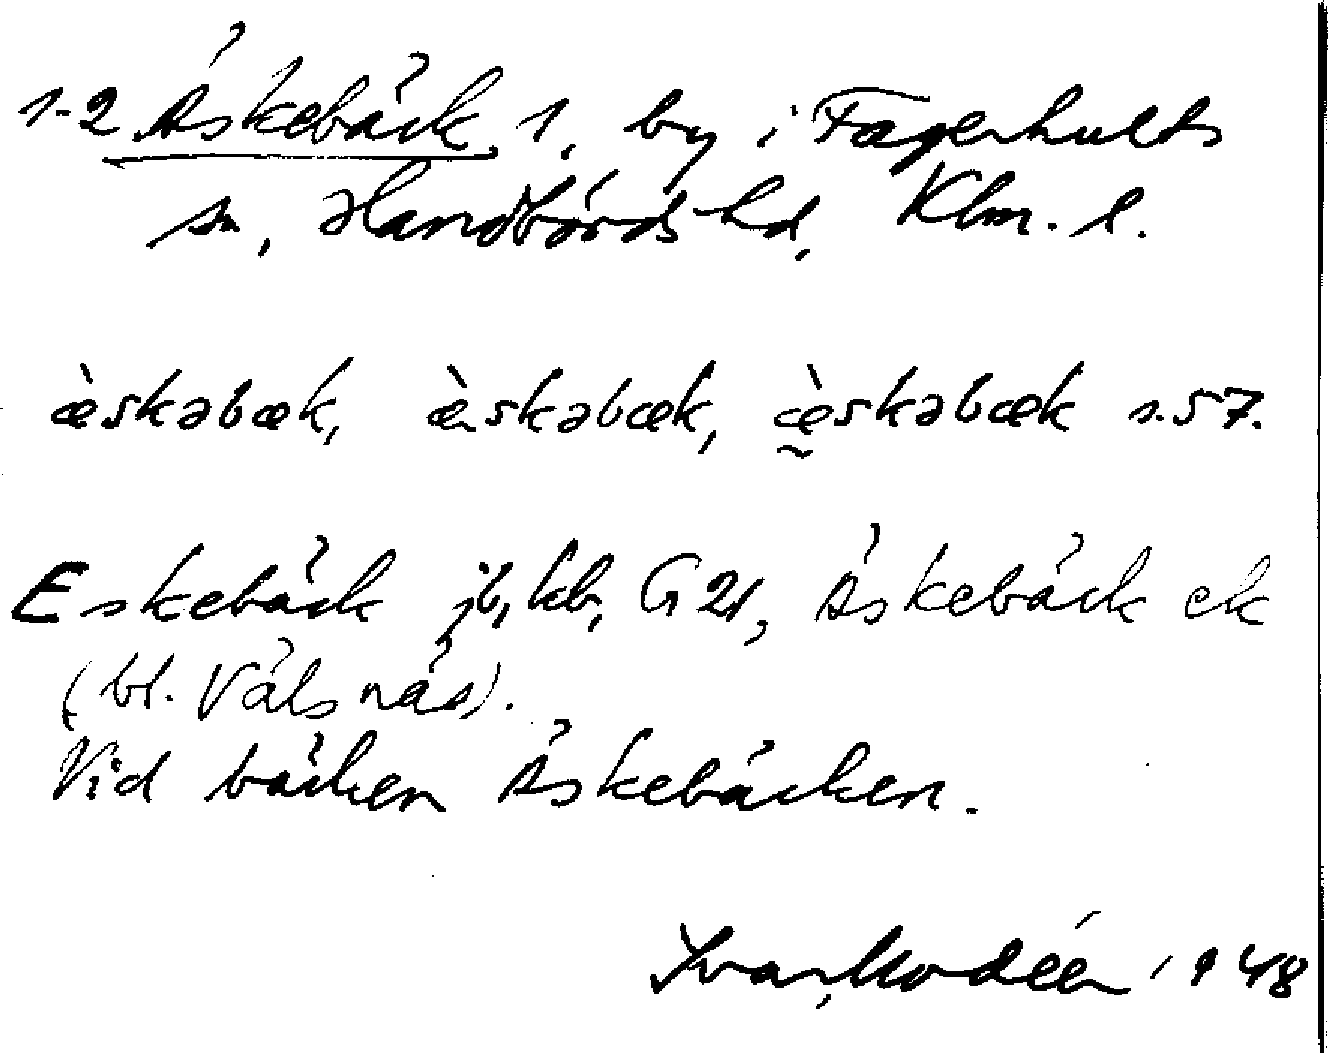 1-2 Äskebäck, 1, by i Fagerhults
sn, Handbörds hd, Klm. l.
æ̀skəbæk, æ̀skəbæk, æ̰̀skəbæk s. 57.
Eskebäck jb, kb, G 21, Äskebäck ek
(bl. Välsnäs).
Vid bäcken Äskebäcken.
Ivar Modéer 1948